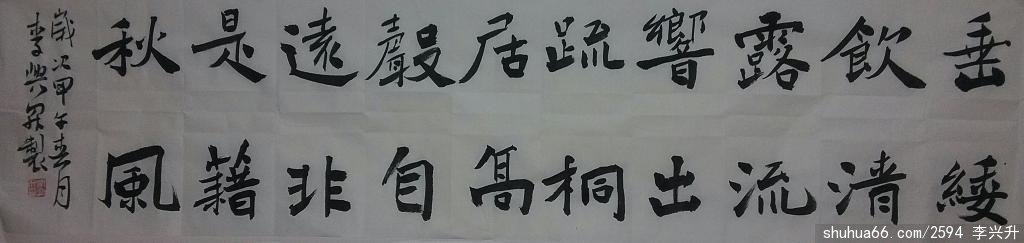 垂緌
飲清
露流
響出
疏桐
居高
聲自
遠非
是籍
秋風
歲次甲午春月
李興昇製
shuhua66.com/2594 李兴升